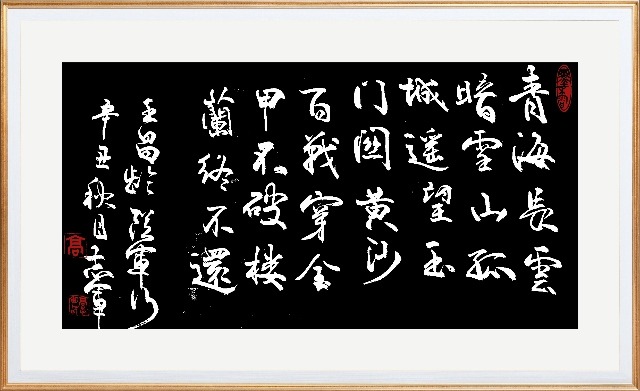 青海長雲
暗雪山孤
城遥望玉
门関黄沙
百戰穿金
甲不破楼
蘭终不還
王昌龄從軍行
辛丑秋月
高